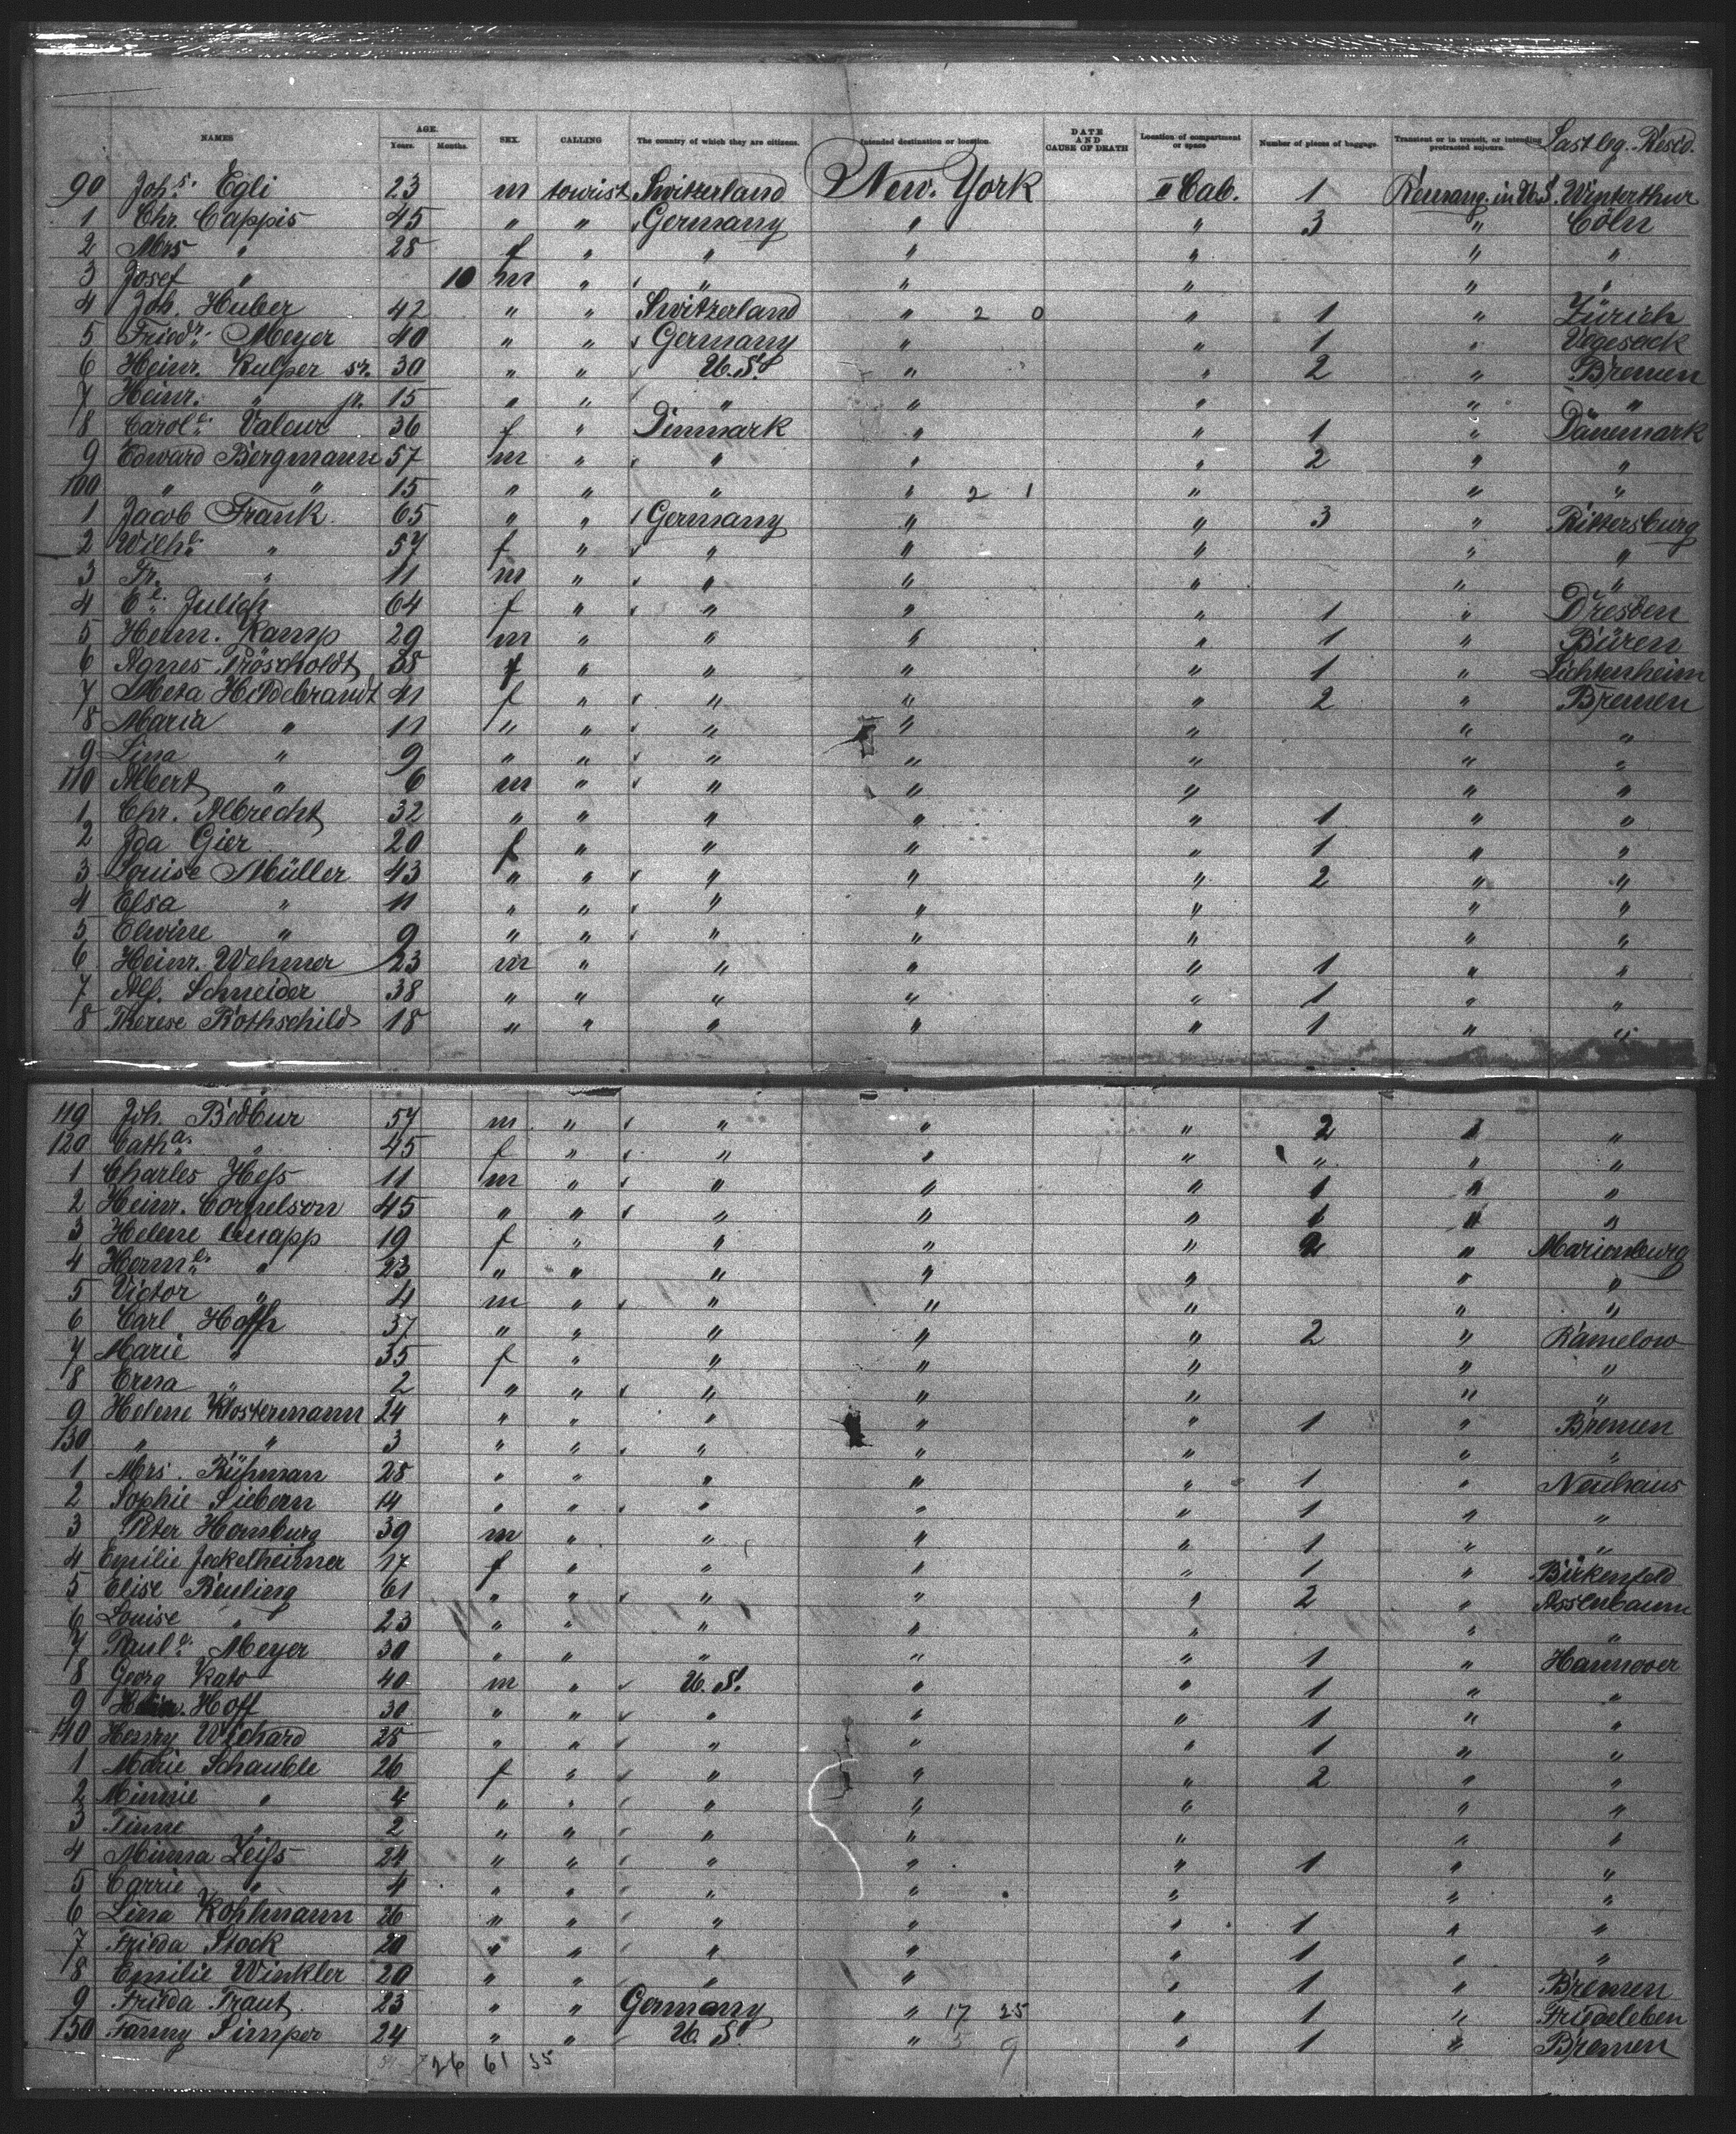 NAMES AGE. Years. Months. SEX. CALLING The country of which they are citizens. Intended destination or location. DATE AND CAUSE OF DEATH Location of compartment or space Number of pieces of baggage. Transient or in transit, or intending protracted sojourn. Last leg. Resid.
90 Joh.s Egli 23 m tourist Switzerland New York II Cab. 1 in U.S. Winterthur
1 Chr. Cappis 45 " " Germany " " 3 " Cöln
2 Mrs " 28 f " " " " " "
3 Josef " 10 m " " " " " "
4 Joh. Huber 42 " " Switzerland " 2 0 " 1 " Zürich
5 Friedr. Meyer 40 " " Germany " " 1 " Vegesack
6 Heinr. Kulper sr. 30 " " U.S. " " 2 " Bremen
7 Heinr. " jr. 15 " " " " " " "
8 Carol.e Valeur 36 f " Dinmark " " 1 " Dänemark
9 Edward Bergmann 57 m " " " " 2 " "
100 " " 15 " " " " 2 1 " " "
1 Jacob Frank 65 " " Germany " " 3 " Rittersburg
2 Wilh.e " 57 f " " " " " "
3 Fr. " 11 m " " " " " "
4 E.e Julich 64 f " " " " 1 " Dresden
5 Herm. Kamp 29 m " " " " 1 " Büren
6 Agnes Pröscholdt 38 f " " " " 1 " Lichtenheim
7 Meta Hildebrandt 41 f " " " " 2 " Bremen
8 Maria " 11 " " " " " " "
9 Lina " 9 " " " " " " "
110 Albert " 6 m " " " " " "
1 Chr. Albrecht 32 " " " " " 1 " "
2 Ida Gier 20 f " " " " 1 " "
3 Louise Müller 43 " " " " " 2 " "
4 Elsa " 11 " " " " " " "
5 Elwine " 9 " " " " " " "
6 Heinr. Wehmer 23 m " " " " 1 " "
7 Alf. Schneider 38 " " " " " 1 " "
8 Therese Rothschild 18 " " " " " 1 " "
119 Joh. Bidbur 57 m " " " " 2 " "
120 Cath.a " 45 f " " " " " " "
1 Charles Hess 11 m " " " " 1 " "
2 Heinr. Cornelson 45 " " " " " 1 " "
3 Helene Cnapp 19 f " " " " 2 " Marienburg
4 Herm.e " 23 " " " " " " "
5 Victor " 4 m " " " " " "
6 Carl Hoffh 37 " " " " " 2 " Ramelow
7 Marie " 35 f " " " " " "
8 Erna " 2 " " " " " " "
9 Helene Klostermann 24 " " " " " 1 " Bremen
130 " " 3 " " " " " " "
1 Mrs. Rühman 28 " " " " " 1 " Neuhaus
2 Sophie Siebern 14 " " " " " 1 " "
3 Peter Homburg 39 m " " " " 1 " "
4 Emilie Jeckelheimer 17 f " " " " 1 " Birkenfeld
5 Elise Reuling 61 " " " " " 2 " Assenbaum
6 Louise " 23 " " " " " " "
7 Paul.e Meyer 30 " " " " " 1 " Hannover
8 Georg Kato 40 m " U.S. " " 1 " "
9 Hoff 30 " " " " " 1 " "
140 Henry Wichard 25 " " " " " 1 " "
1 Marie Schauble 26 f " " " " 2 " "
2 Minnie " 4 " " " " " " "
3 Tinne " 2 " " " " " " "
4 Minna Zeiss 24 " " " " " 1 " "
5 Carrie " 4 " " " " " " "
6 Lina Kohlmann 26 " " " " " 1 " "
7 Frieda Stock 20 " " " " " 1 " "
8 Emilie Winkler 20 " " " " " 1 " Bremen
9 Frieda Traut 23 " " Germany " 17 25 " 1 " Friedeleben
150 Fanny Simper 24 " " U.S. " 5 9 " 1 " Bremen
26 61 35